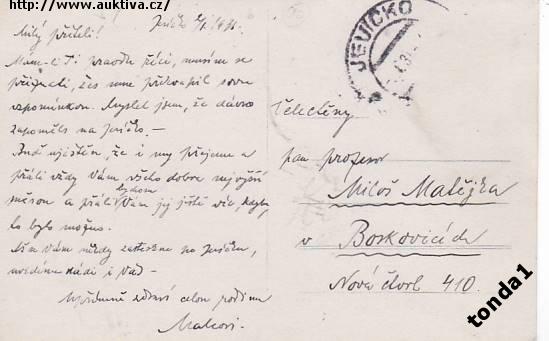 http://www.auktiva.cz/
Milý příteli!
Jevíčko
Mám-li Ti pravdu říci, musím se
přiznati, žes mne překvapil svou
vzpomínkou. Myslel jsem, že dávno
zapoměls na Jevíčko.—
Buď ujištěn, že i my přejeme a
přáli vždy Vám všeho dobra nejvyšší
měrou a přáli bychom Vám jej ještě víc, kdyby
to bylo možno.
Vám někdy po Jevíčku,
uvidíme rádi i Vás—
Upřímně zdraví celou rodinu
JEVÍČKO
Ctěný
pan profesor
Miloš Matějka
v Boskovicích
Nová čtvrť 410.
tonda1